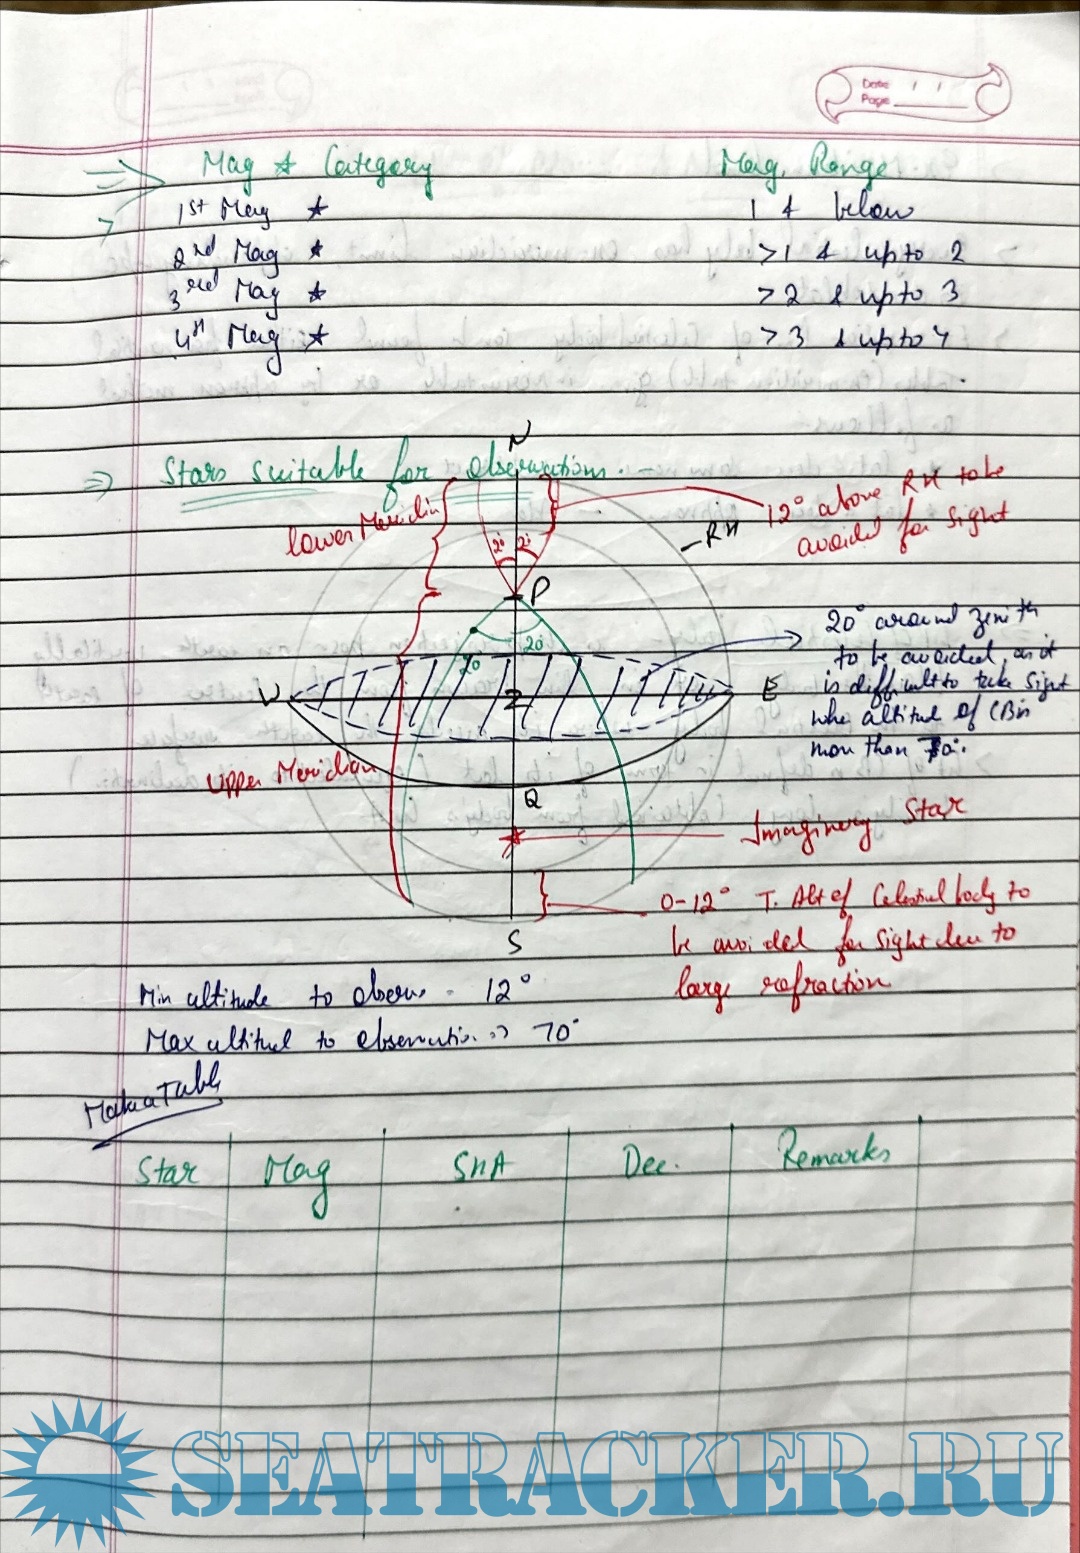 Date
Page
Mag ☆ Category Mag. Range
1st Mag ☆ 1 & below
2nd Mag ☆ >1 & upto 2
3rd Mag ☆ >2 & upto 3
4th Mag ☆ >3 & upto 4
N
⇒ Stars suitable for observations.
lower Meridin
12° above RH to be
avoided for sight
-RH
2° 2°
P
20
20
20° around Zenith
to be avoided, as it
is difficult to take sight
whe altitud of CB is
more than 70°.
W Z E
Upper Meridian
Q
Imaginery Star
0-12° T. Alt of Celestial body to
be avoided for sight due to
large refraction
S
Min altitude to observ - 12°
Max altitud to observation ⇒ 70°
Make a Table
Star Mag SHA Dec. Remarks
SEATRACKER.RU